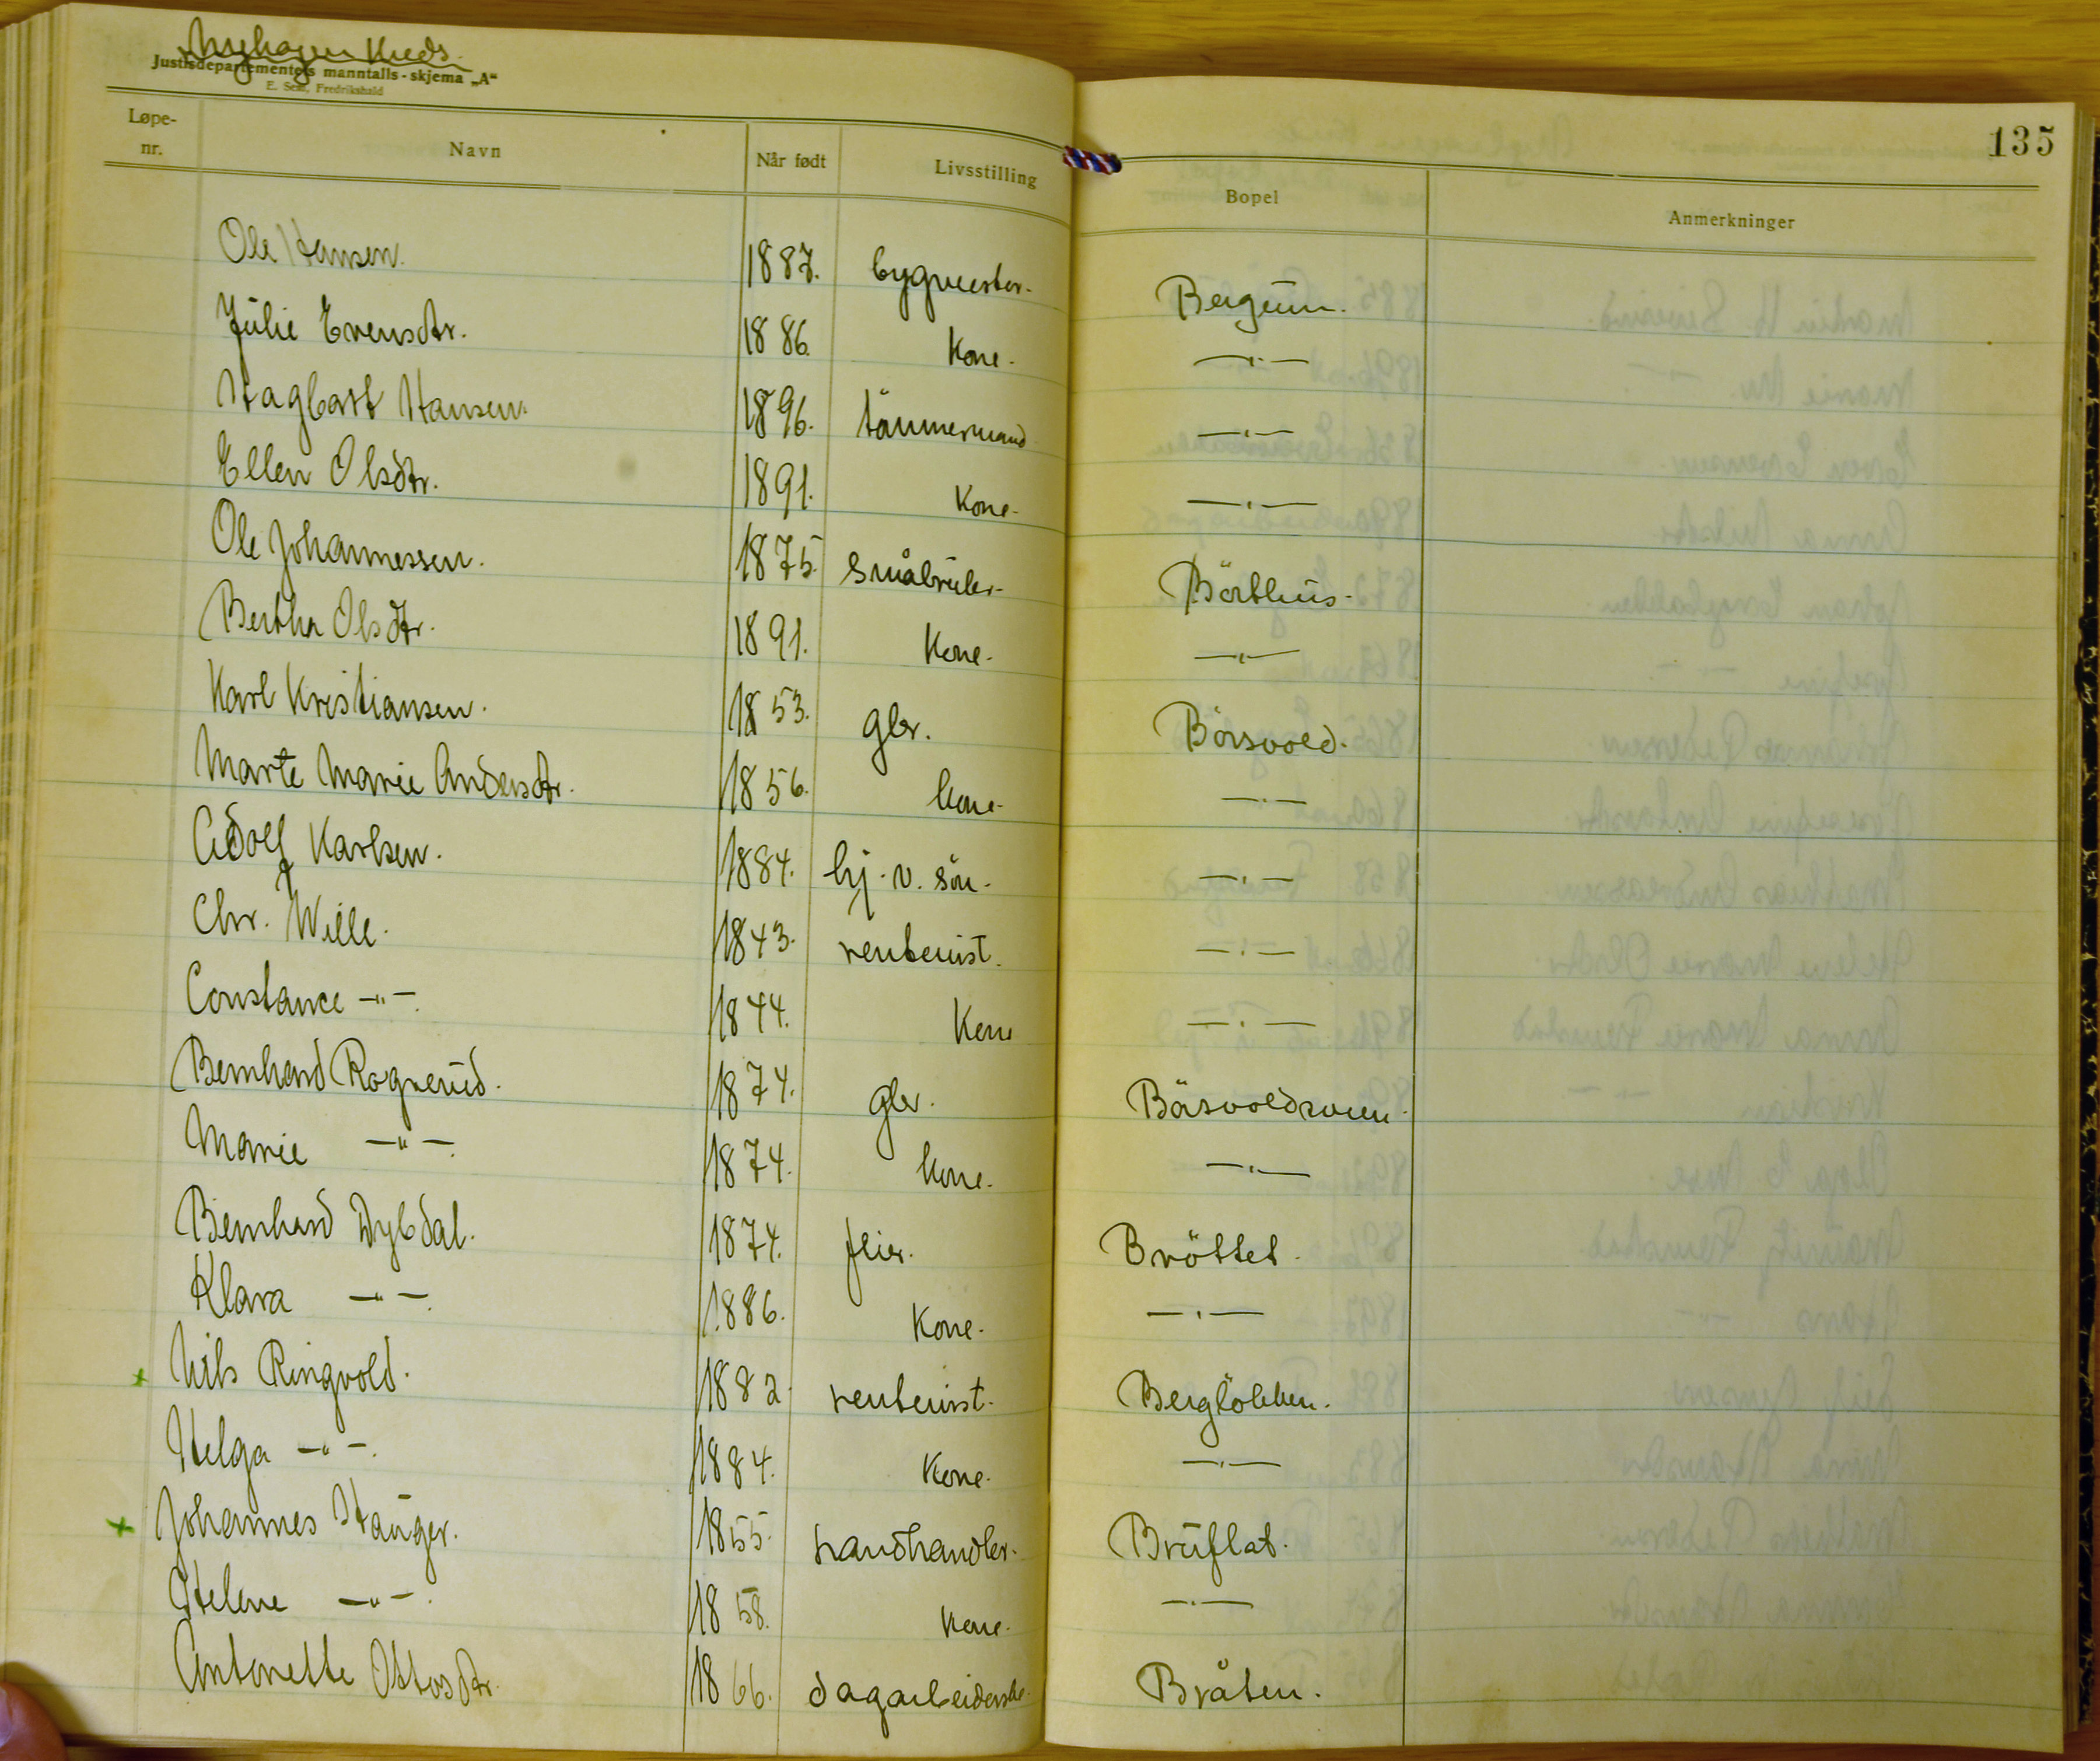 Kreds.
Justisdepartementets manntalls-skjema „A“
E. Sem, Fredrikshald
135
Løpe-nr. Navn Når født Livsstilling Bopel Anmerkninger
Ole Hansen. 1887. bygmester. Bergum.
Julie Evensdtr. 1886. Kone. —"—
Hagbart Hansen. 1896. tömmermand —"—
Ellen Olsdtr. 1891. Kone. —"—
Ole Johannessen. 1875. Småbruker. Börthus.
Bertha Olsdtr. 1891. Kone. —"—
Karl Kristiansen. 1853. gbr. Börsvold.
Marte Marie Andersdtr. 1856. kone. —"—
Adolf Karlsen. 1884. hj. v. sön. —"—
Chr. Wille. 1843. rentenist. —"—
Constance —"—. 1844. Kone —"—
Bernhard Rognerud. 1874. gbr. Börsvoldsveen.
Marie —"—. 1874. kone. —"—
Bernhard Dybdal. 1874. feier. Bröttet.
Klara —"—. 1886. Kone. —"—
x Nils Ringvold. 1882. rentenist. Berglökken.
Helga —"—. 1884. Kone. —"—
x Johannes Hauger. 1855. handhandler. Bruflat.
Helene —"—. 1858. kone. —"—
Antonette Ottosdtr. 1866. dagarbeiderske. Bråten.